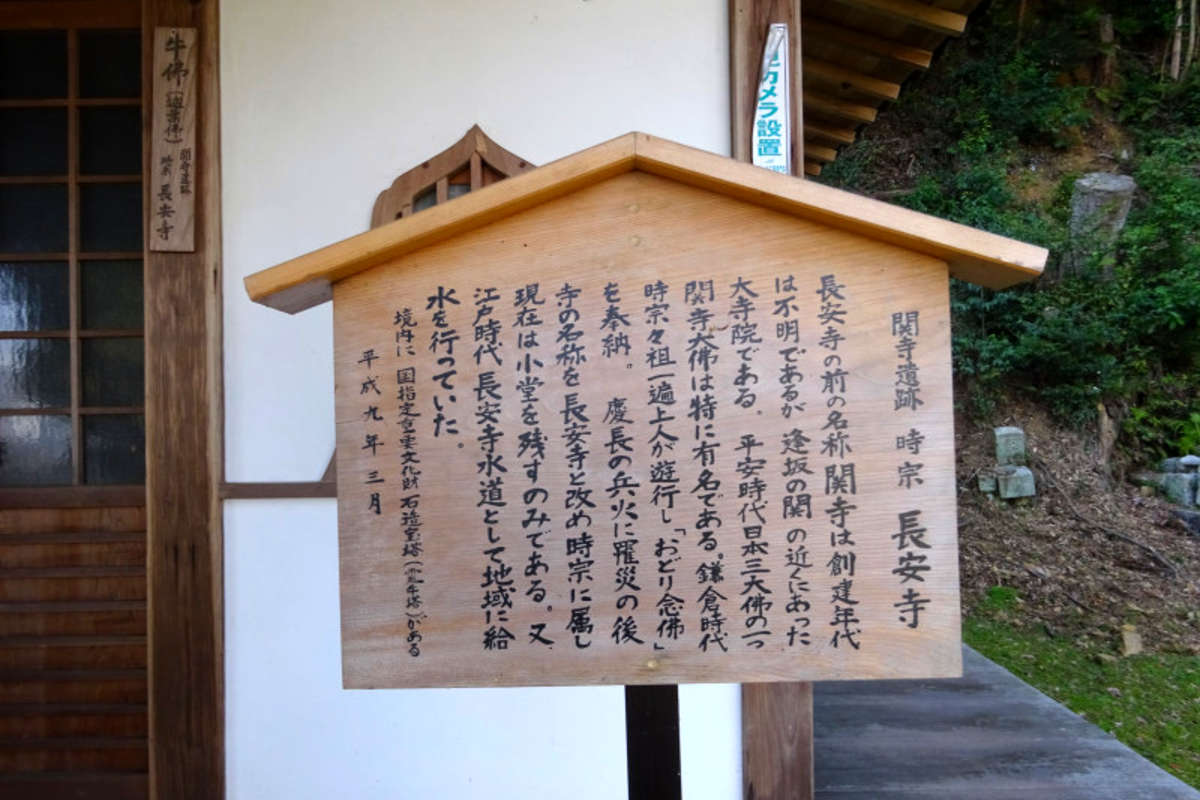 関寺遺跡 時宗 長安寺
長安寺の前の名称関寺は創建年代
は不明であるが逢坂の関の近くにあった
大寺院である。平安時代日本三大佛の一つ
関寺大佛は特に有名である。鎌倉時代
時宗々祖一遍上人が遊行し「おどり念佛」
を奉納。慶長の兵火に罹災の後
寺の名称を長安寺と改め時宗に属し
現在は小堂を残すのみである。又
江戸時代長安寺水道として地域に給
水を行っていた。
境内に国指定重要文化財石造宝塔(牛塔)がある
平成九年三月
牛佛
時宗 長安寺
カメラ設置